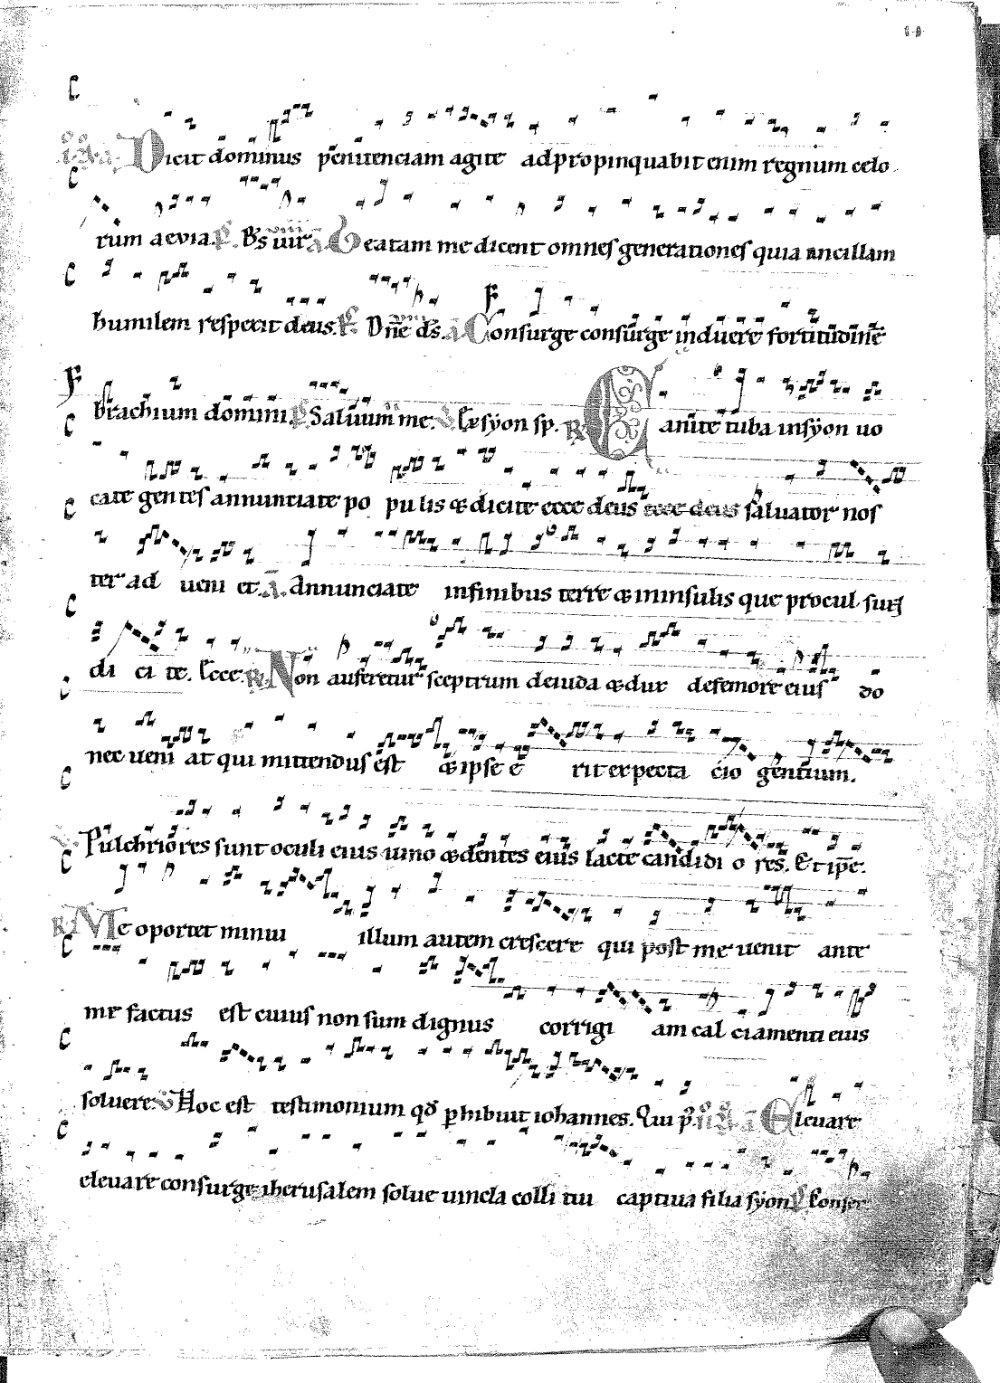 Dicit dominus penitenciam agite adpropinquabit enim regnum celo
rum aevia. Bs vir Beatam me dicent omnes generationes quia ancillam
humilem respexit deus. Dne ds. Consurge consurge induere fortitudine
brachium domini. Saluum me. Ecce syon sp. Canite tuba in syon uo
cate gentes annunciate po pulis & dicite ecce deus ecce deus saluator nos
ter ad ueni et. Annunciate in finibus terre & in insulis que procul sun
di ci te. Ecce. Non auferetur sceptrum de iuda & dux de femore eius do
nec ueni at qui mittendus est & ipse e rit expecta cio gentium.
Pulchriores sunt oculi eius uino & dentes eius lacte candidi o res. Et ipse.
Me oportet minui illum autem crescere qui post me uenit ante
me factus est cuius non sum dignus corrigi am cal ciamenti eius
soluere. Hoc est testimonium qd phibuit iohannes. Qui p. Eleuare
eleuare consurge iherusalem solue uincla colli tui captiua filia syon Conser